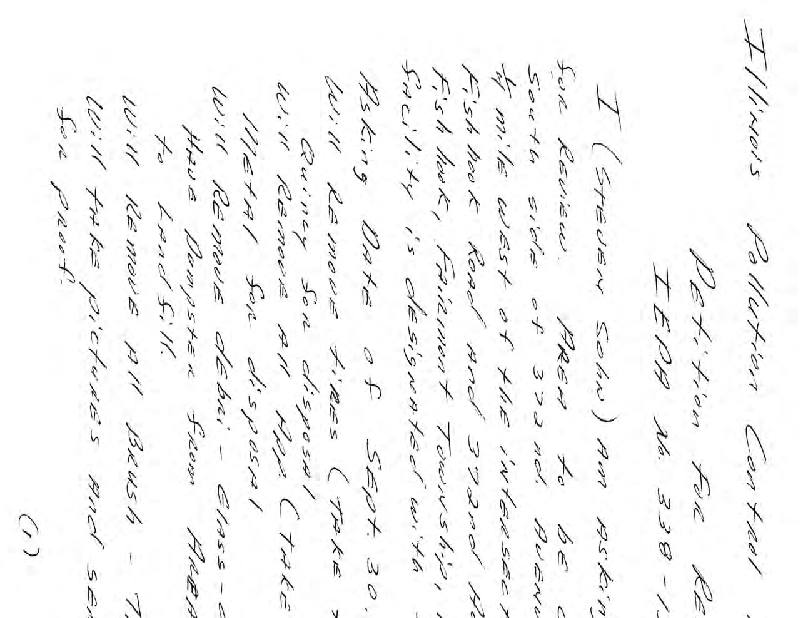 Illinois Pollution Control
Petition for RE
IEPA No. 338-1
I (STEVEN SOHN) AM ASKIN
for REVIEW. AREA to BE
South side of 372nd AVENU
1/4 mile west of the intersect
Fishhook Road and 372nd A
Fishhook, Fairmont Township,
facility is designated with
Asking DATE of SEPT. 30,
Will REMOVE tires (TAKE
Quincy for disposal
Will REMOVE All App (TAKE
METAL for disposal
Will REMOVE debri - Glass -
HAVE Dumpster from AREA
to Landfill.
Will REMOVE All BRUSH - T
Will TAKE pictures And SEN
for proof.
(1)